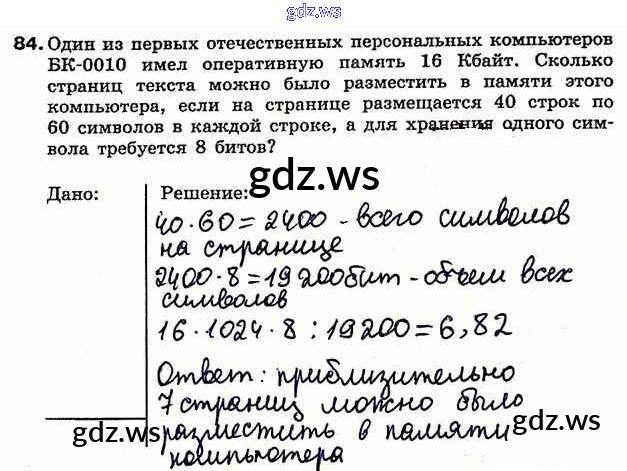 gdz.ws
84. Один из первых отечественных персональных компьютеров
БК-0010 имел оперативную память 16 Кбайт. Сколько
страниц текста можно было разместить в памяти этого
компьютера, если на странице размещается 40 строк по
60 символов в каждой строке, а для хранения одного сим-
вола требуется 8 битов?
Дано:
Решение:
gdz.ws
40·60=2400 - всего символов
на странице
2400·8=19200бит - объем всех
символов
16·1024·8:19200=6,82
Ответ: приблизительно
7 страниц можно было
gdz.ws
gdz.ws
разместить в памяти
компьютера